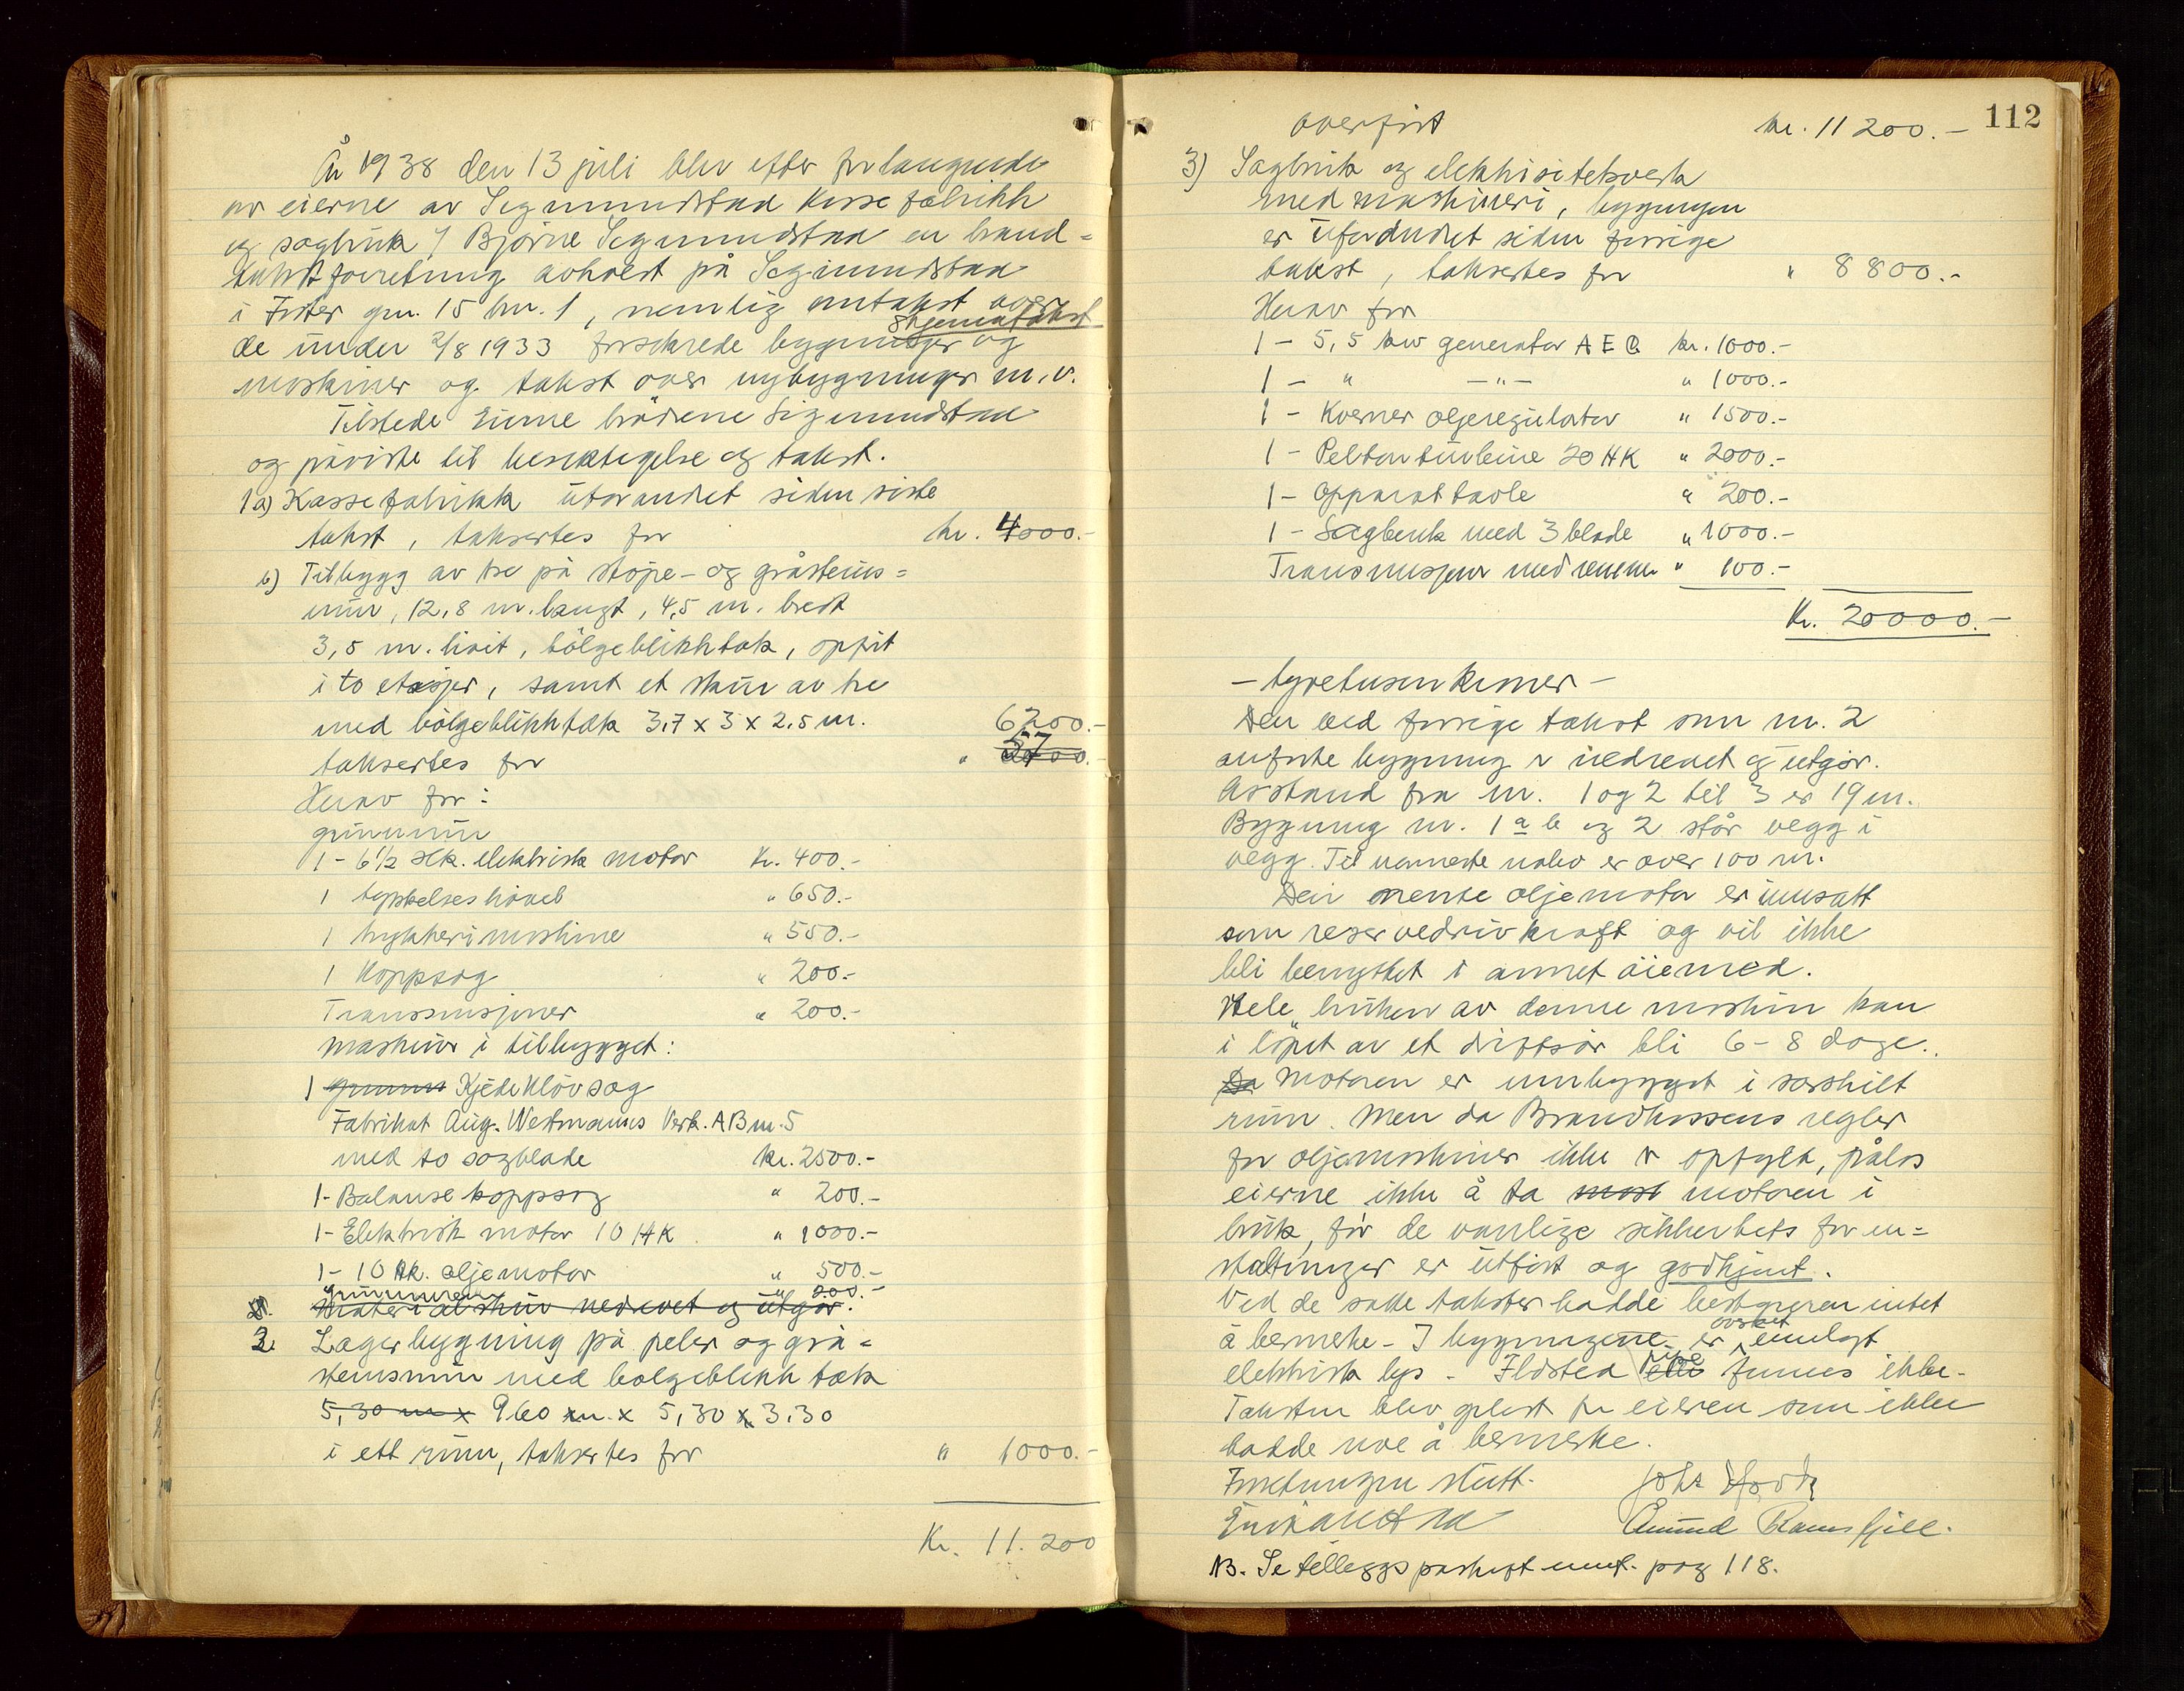 År 1938 den 13 juli blev efter forlangende
av eierne av Sigmundstad Kassefabrikk
og sagbruk v/ Bjarne Sigmundstad en brand-
takstforretning avholdt på Sigmundstad
i Fister gnr. 15 bnr. 1, nemlig omtakst over
skjematakst
de under 2/8 1933 forsikrede bygninger og
maskiner og takst over nybygninger m.v.
Tilstede Eierne brödrene Sigmundstad
og påviste til besiktigelse og takst.
1a) Kassefabrikk uforandret siden siste
takst, takseres for kr. 4000.-
b) Tilbygg av tre på stöpe- og gråsteins-
mur, 12,8 m. langt, 4,5 m. bredt
3,5 m. höit, bölgeblikktak, opført
i to etasjer, samt et skur av tre
med bölgeblikktak 3.7 x 3 x 2.5 m. 6200.-
takseres for " 5700.-
Herav for:
grunnmur
1 - 6 1/2 Hk. elektrisk motor Kr. 400.-
1 tykkelseshövel " 650.-
1 trykkerimaskine " 550.-
1 Koppsag " 200.-
Transmisjoner " 200.-
maskiner i tilbygget:
1 Kjedeklövsag
Fabrikat Aug. Westmans Verk. AB nr. 5
med to sagblade kr. 2500.-
1 - Balanse koppsag " 200.-
1 - Elektrisk motor 10 HK " 1000.-
1 - 10 Hk. oljemotor " 500.-
grunnmuren " 200.-
2. Materialskur nedrevet og utgår.
2. Lagerbygning på peler og grå-
steinsmur med bølgeblikk tak
5,30 m x 9.60 m. x 5,30 x 3.30
i ett rum, takseres for " 1000.-
Kr. 11.200
112
overført kr. 11200.-
3) Sagbruk og elektrisitetsverk
med maskineri, bygningen
er uforandret siden forrige
takst, takseres for " 8800.-
Herav for
1 - 5,5 kw generator AEG kr. 1000.-
1 - " -"- " 1000.-
1 - Kverner oljeregulator " 1500.-
1 - Pelton turbine 20 HK " 2000.-
1 - apparattavle " 200.-
1 - Sagbenk med 3 blade " 1000.-
Transmisjoner med remmer " 100.-
Kr. 20000.-
- tyvetusen kroner -
Den ved forrige takst som nr. 2
anførte bygning er nedrevet og utgår.
Avstand fra nr. 1 og 2 til 3 er 19 m.
Bygning nr. 1 a b og 2 står vegg i
vegg. Til nærmeste nabo er over 100 m.
Den nevnte oljemotor er innsatt
som reservedrivkraft og vil ikke
bli benyttet i annet öiemed.
Hele bruken av denne maskin kan
i löpet av et driftsår bli 6-8 dage.
Da Motoren er innbygget i særskilt
rum. Men da Brandkassens regler
for oljemaskiner ikke er opfylt, pålas
eierne ikke å ta mosk motoren i
bruk, før de vanlige sikkerhets foran-
staltninger er utført og godkjent.
Ved de satte takster hadde bestyreren intet
å bemerke - I bygningene er innlagt
elektrisk lys - Ildsted eller pipe finnes ikke.
Taksten blev oplest for eieren som ikke
hadde noe å bemerke.
Forretningen slutt.
Amund Ramsfjell.
NB. Se tilleggspåskrift pag 118.